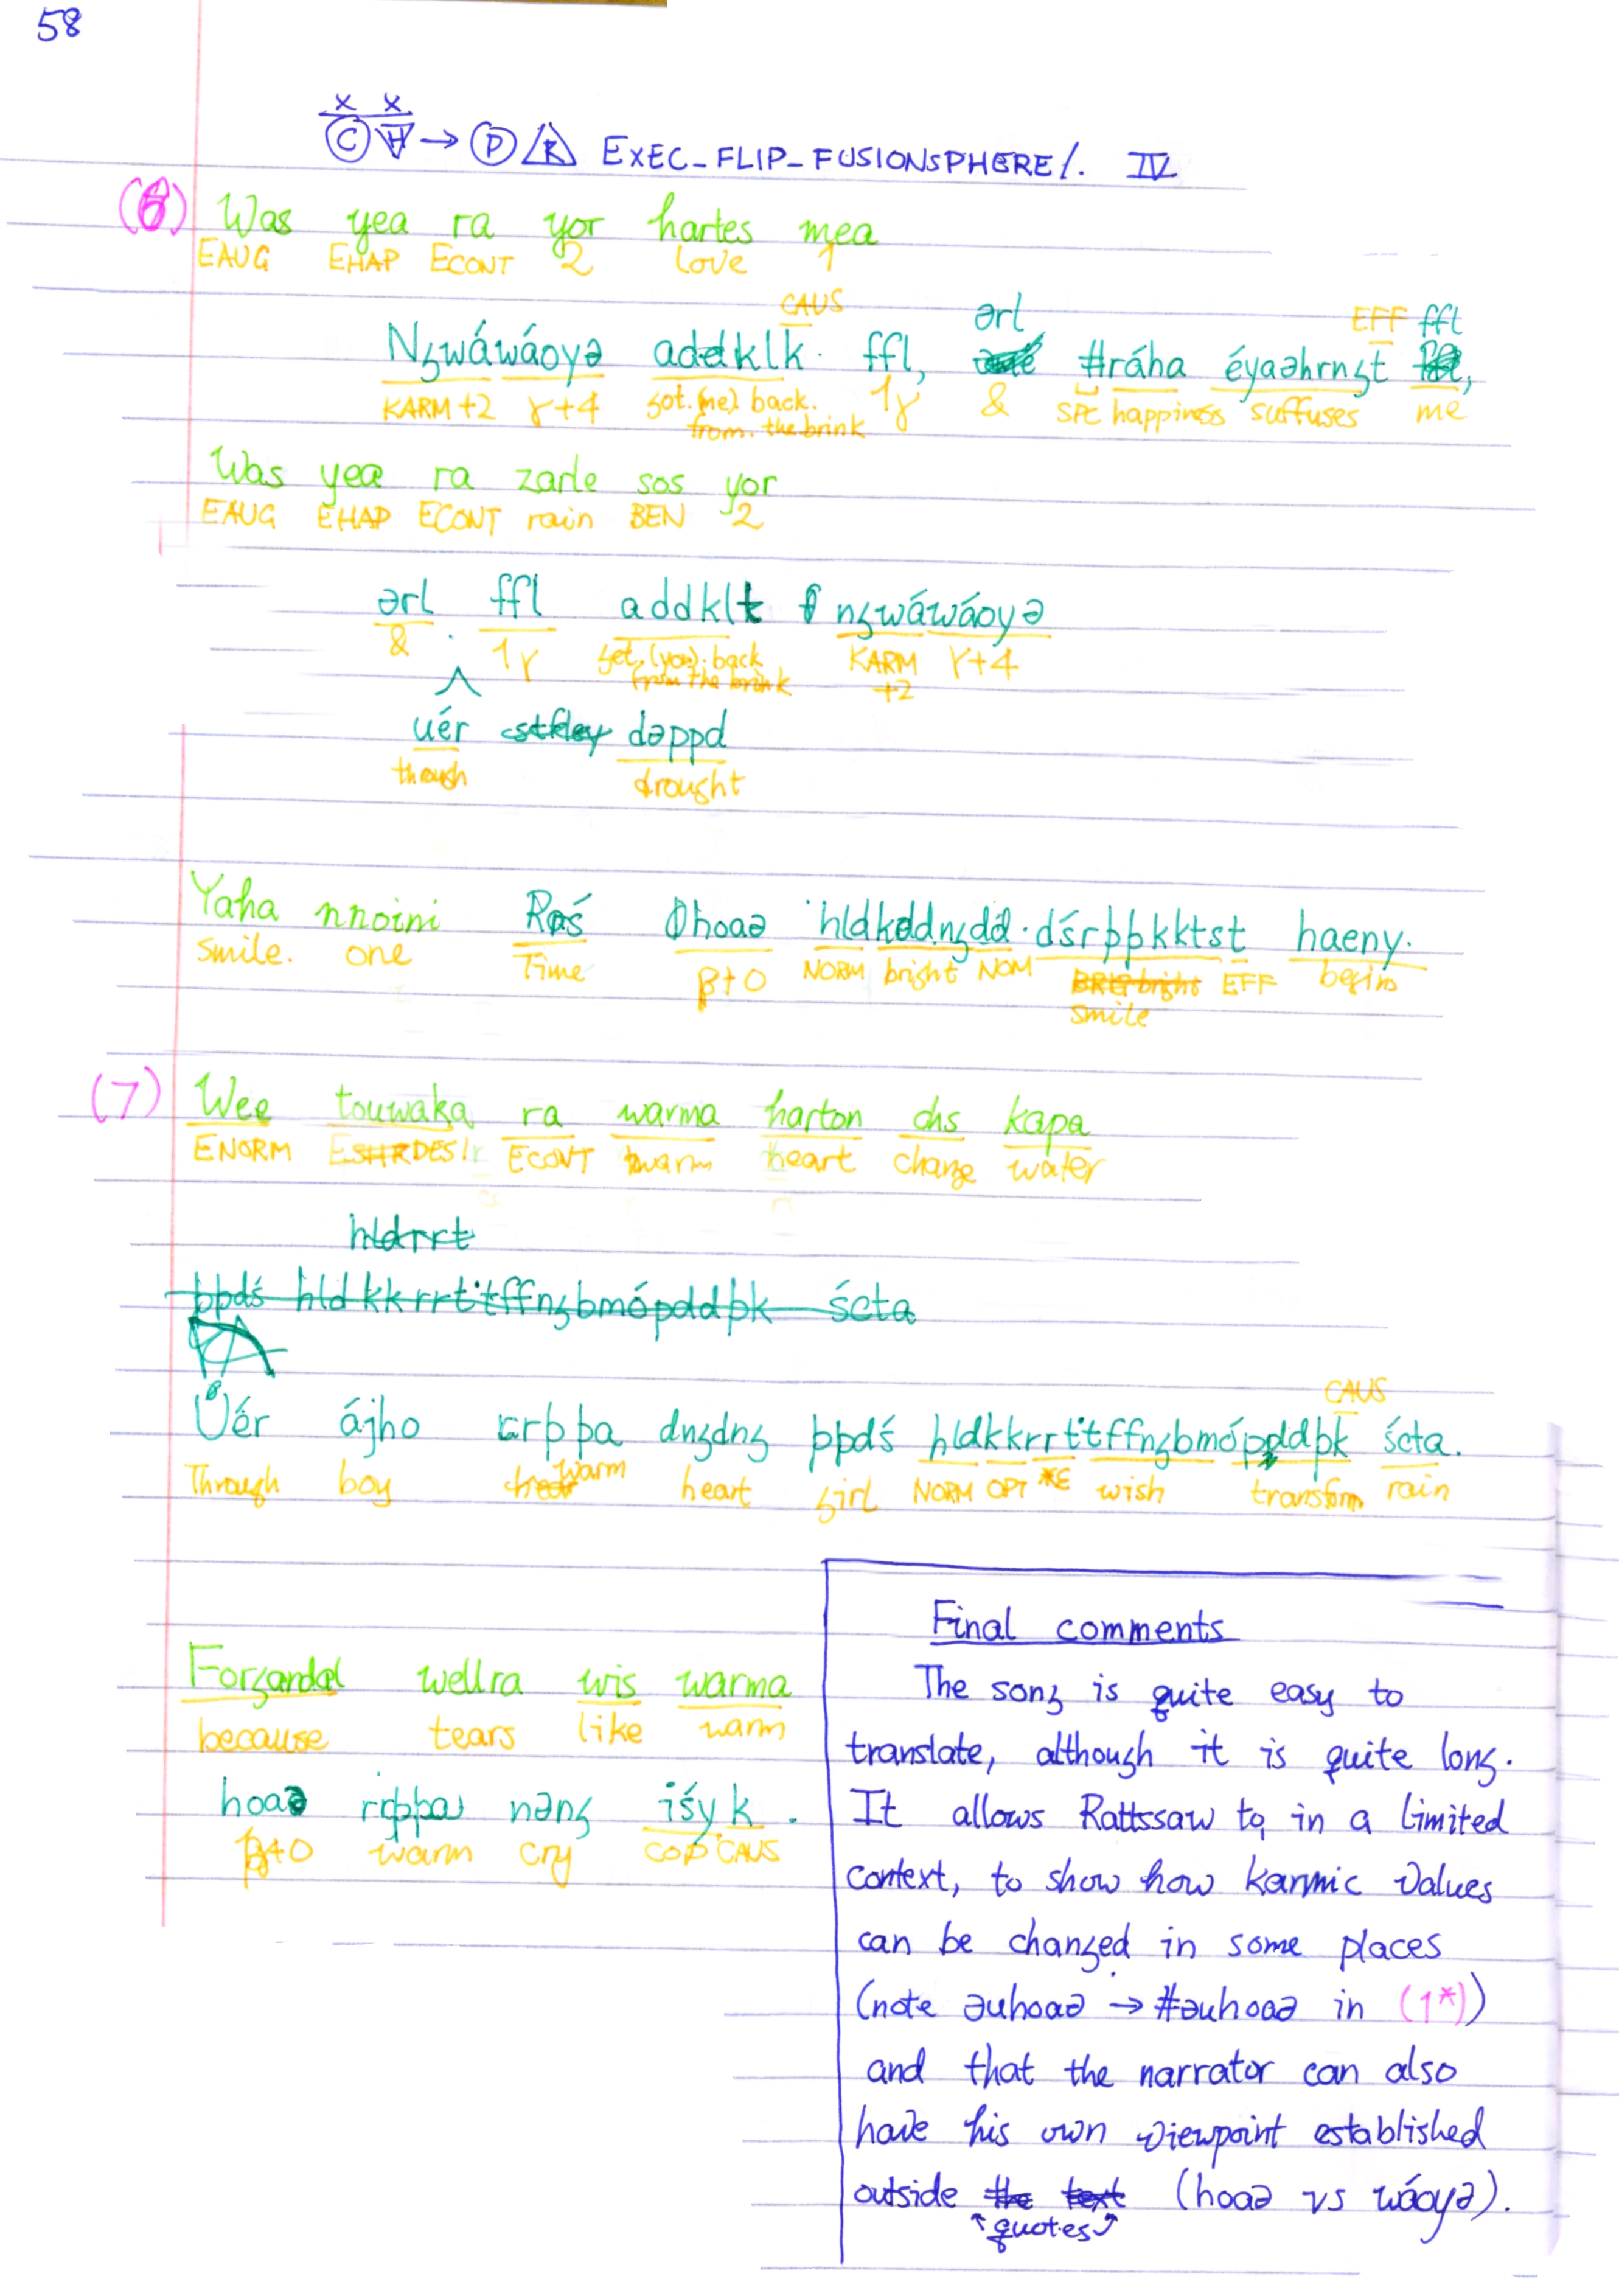 58
x x
C H → P R EXEC_FLIP_FUSIONSPHERE/. IV
(6) Was yea ra yor hartes mea
EAUG EHAP ECONT 2 love 1
CAUS ərl EFF ffl
Nʒwáwáoyə addklk. ffl, #ráha éyaəhrnʒt
KARM+2 γ+4 got.(me) back. from. the brink 1γ & SPE happiness suffuses me
Was yea ra zarle sos yor
EAUG EHAP ECONT rain BEN 2
ərl ffl addklt nʒwáwáoyə
& 1γ get.(you).back from the brink KARM +2 γ+4
uér dəppd
though drought
Yaha nnoini Roś hoaə hldkddnʒdd.dśrþþkktst haeny.
smile. one Time β+0 NORM bright NOM smile EFF begin
(7) Wee touwaka ra warma harton chs kapa
ENORM EDESIr ECONT warm heart change water
hldrrt
þþdś hldkkrrtttffnʒbmópddþk ścta
CAUS
Uér ájho crþþa dnʒdnʒ þþdś hldkkrrtttffnʒbmópddþk ścta.
Through boy warm heart girl NORM OPT wish transform rain
Forgandal wellra wis warma
because tears like warm
hoaə rþþa nənʒ iśyk.
β+0 warm cry COP CAUS
Final comments
The song is quite easy to
translate, although it is quite long.
It allows Rattssaw to, in a limited
context, to show how karmic values
can be changed in some places
(note əuhoaə → #əuhoaə in (1*))
and that the narrator can also
have his own viewpoint established
outside the text (hoaə vs wáoyə).
quotes